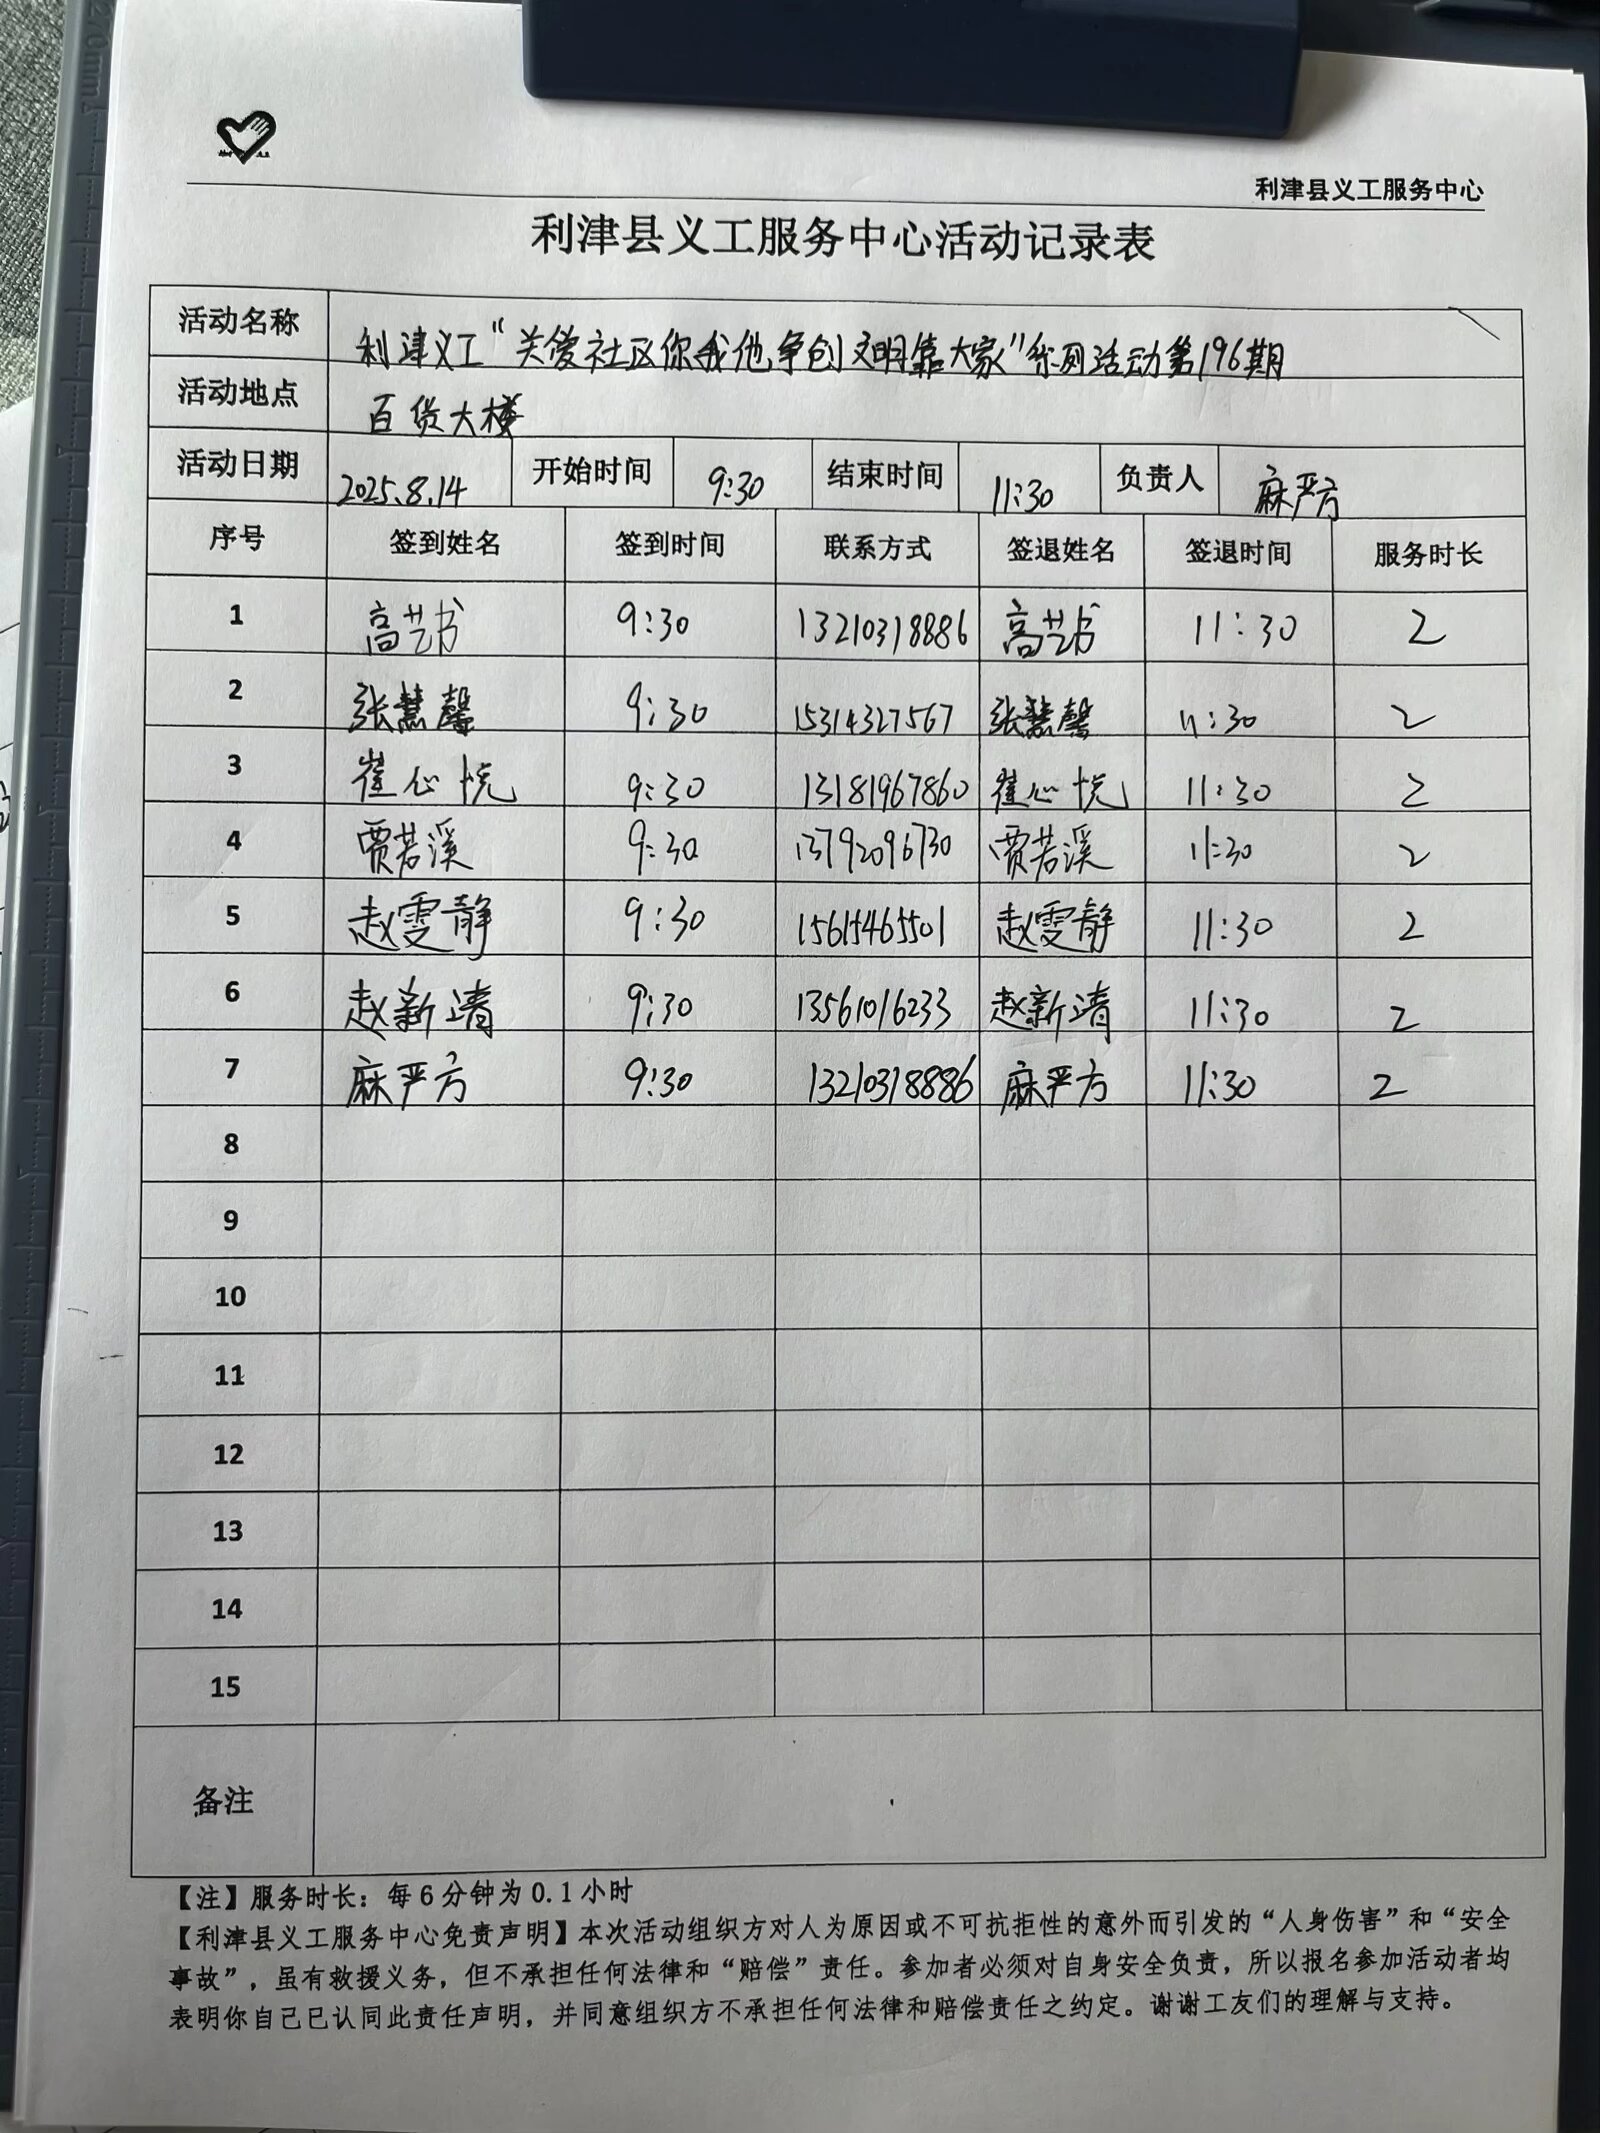 利津县义工服务中心
利津县义工服务中心活动记录表
活动名称 利津义工“关爱社区你我他,争创文明靠大家”系列活动第196期
活动地点 百货大楼
活动日期 2025.8.14 开始时间 9:30 结束时间 11:30 负责人 麻严方
序号 签到姓名 签到时间 联系方式 签退姓名 签退时间 服务时长
1 高艺书 9:30 13210318886 高艺书 11:30 2
2 张慧馨 9:30 15314327567 张慧馨 11:30 2
3 崔心悦 9:30 13181967860 崔心悦 11:30 2
4 贾若溪 9:30 13792096730 贾若溪 11:30 2
5 赵雯静 9:30 15615465501 赵雯静 11:30 2
6 赵新清 9:30 13561016233 赵新清 11:30 2
7 麻严方 9:30 13210318886 麻严方 11:30 2
8
9
10
11
12
13
14
15
备注
【注】服务时长：每6分钟为0.1小时
【利津县义工服务中心免责声明】本次活动组织方对人为原因或不可抗拒性的意外而引发的“人身伤害”和“安全
事故”，虽有救援义务，但不承担任何法律和“赔偿”责任。参加者必须对自身安全负责，所以报名参加活动者均
表明你自己已认同此责任声明，并同意组织方不承担任何法律和赔偿责任之约定。谢谢工友们的理解与支持。